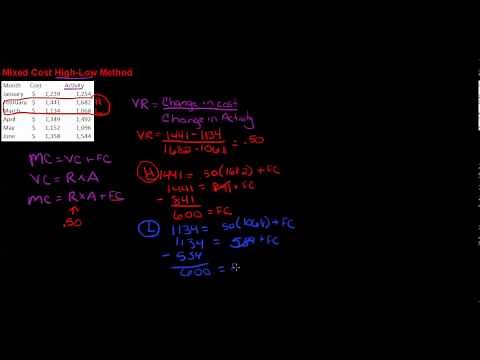 Mixed Cost High-Low Method
Month Cost Activity
January $ 1,239 1,254
February $ 1,441 1,682
March $ 1,134 1,068
April $ 1,349 1,492
May $ 1,152 1,096
June $ 1,358 1,544
H
MC = VC + FC
VC = R x A
MC = R x A + FC
.50
VR = Change in cost
Change in Activity
VR = 1441 - 1134 = .50
1682 - 1068
H 1441 = .50(1682) + FC
1441 = 841 + FC
- 841
600 = FC
L 1134 = .50(1068) + FC
1134 = 534 + FC
- 534
600 =